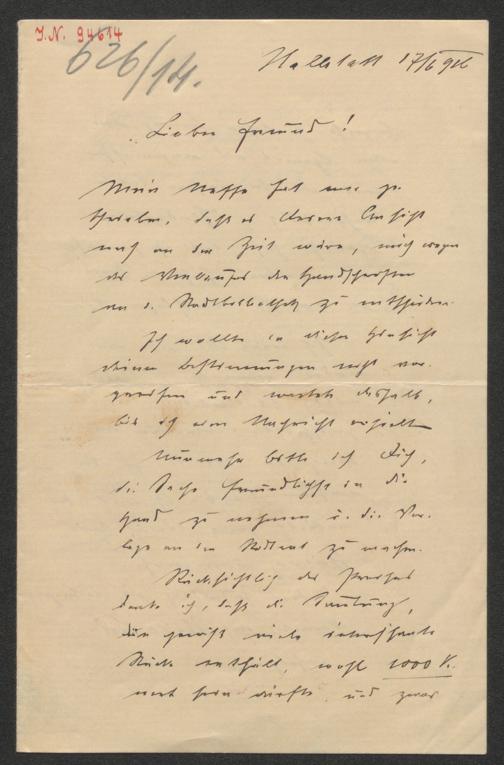 I.N. 94614
626/14.
Hallstatt 17/6 916
Lieber Freund!
Mein Neffe hat mir ge-
schrieben, daß es Deiner Ansicht
nach an der Zeit wäre, mich wegen
des Verkaufes der Handschriften
an d. Stadtbibliothek zu entscheiden.
Ich wollte in dieser Hinsicht
deinen Bestimmungen nicht vor-
greifen und wartete deshalb,
bis ich eine Nachricht erhielt
Nunmehr bitte ich Dich,
die Sache freundlichst in die
Hand zu nehmen u. die Vor-
lage an den Stadtrat zu machen.
Rücksichtlich des Preises
denke ich, daß die Sammlung,
die gewiß viele interessante
Stücke enthält, wohl 1000 K.
wert sein dürfte und zwar